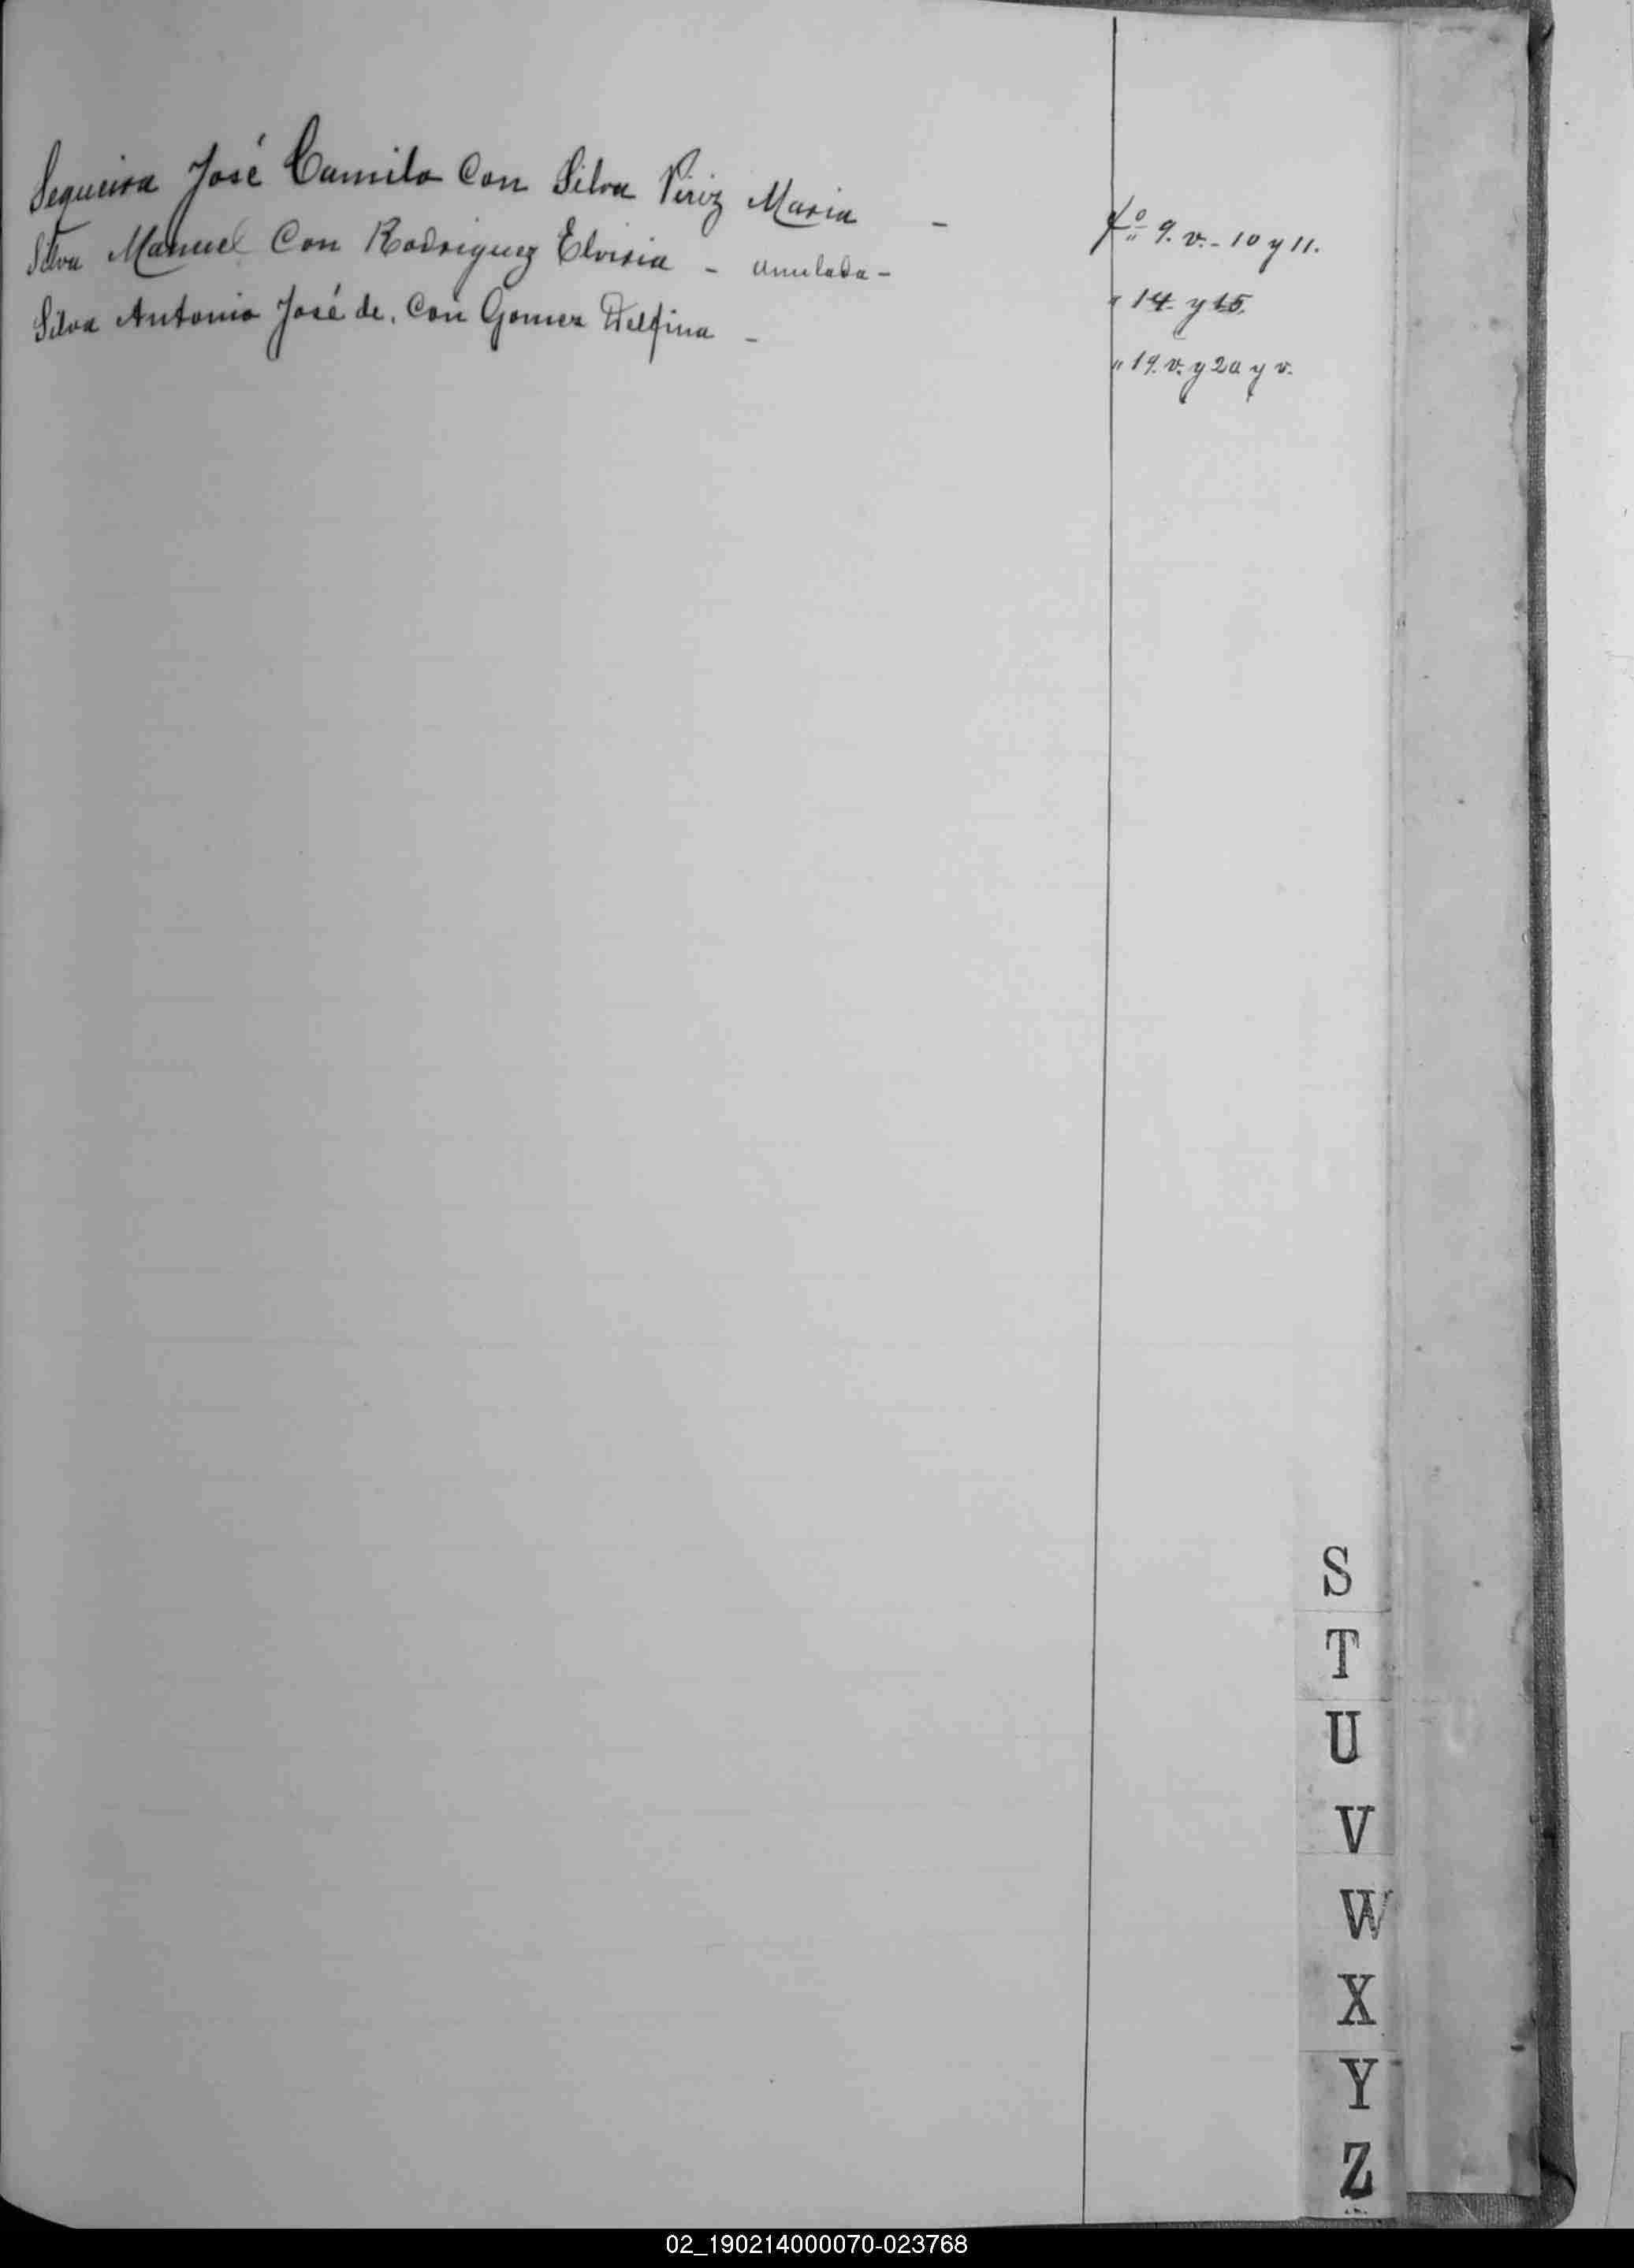 Sequeira José Camilo Con Silva Piriz Maria - fº 9. v. - 10 y 11.
Silva Manuel Con Rodriguez Elvisia - anulada - " 14 y 15.
Silva Antonio José de. Con Gomez Delfina - " 19. v. y 20 y v.
S
T
U
V
W
X
Y
Z
02_190214000070-023768